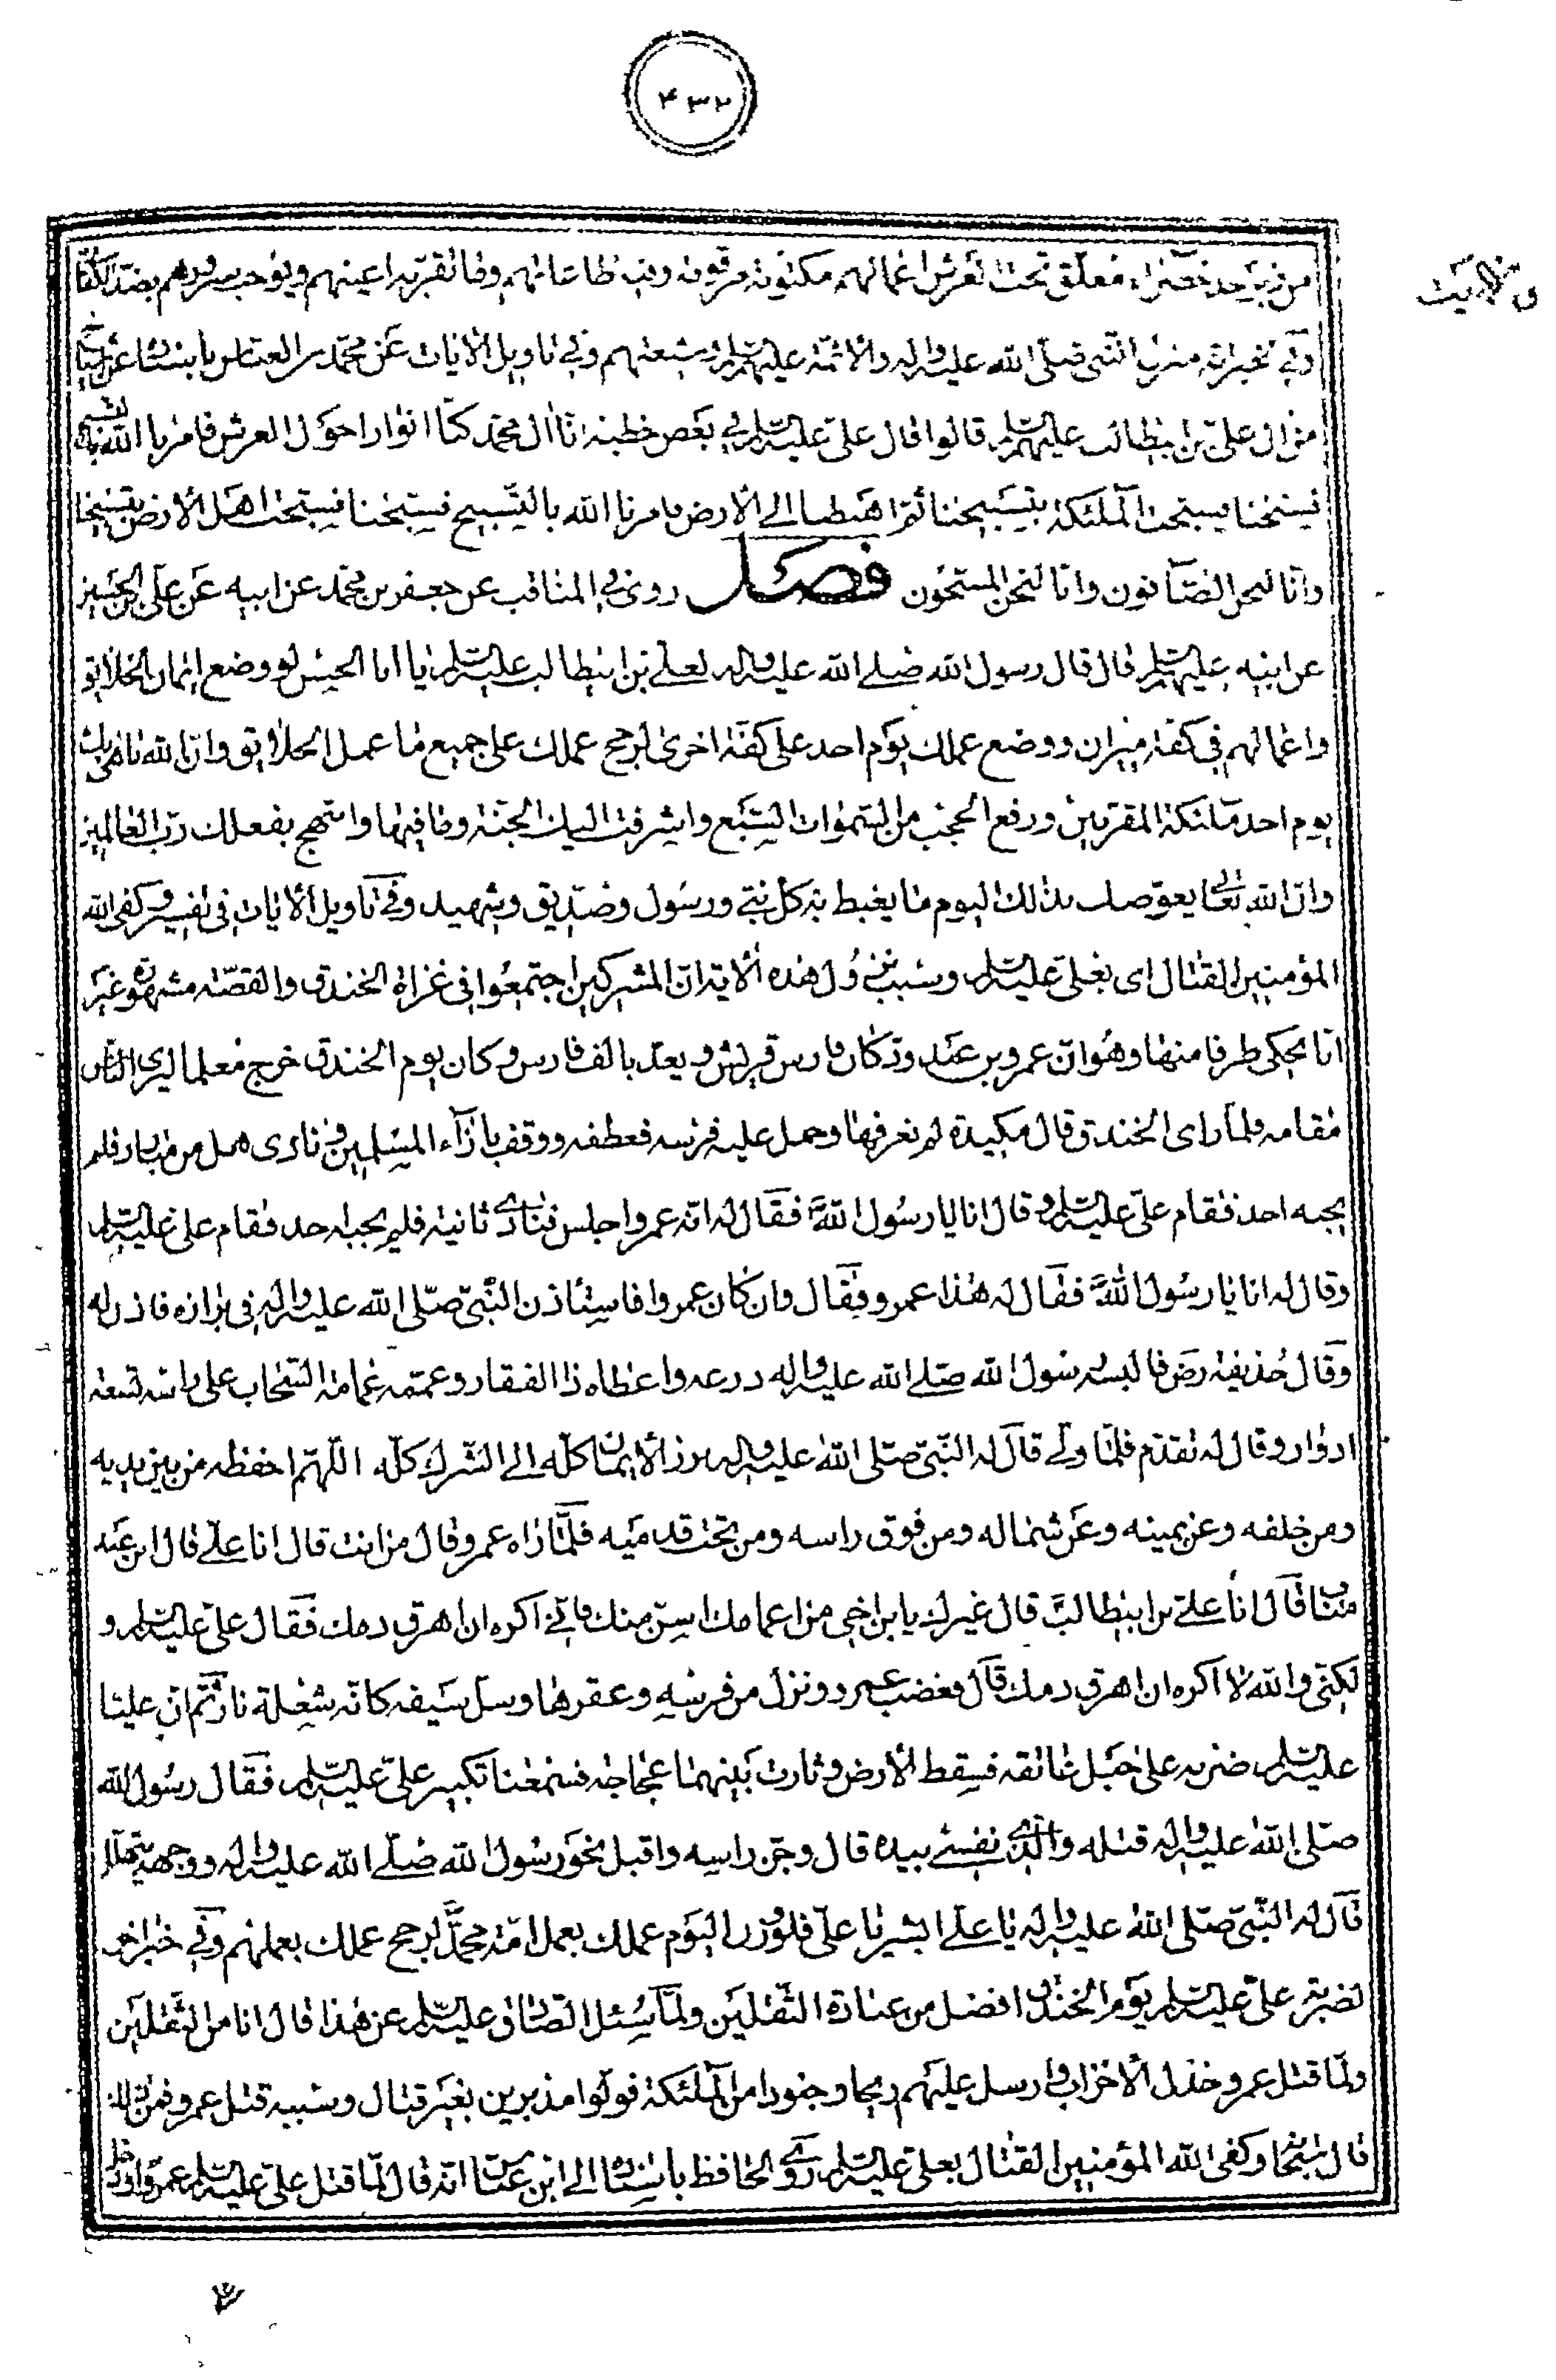 ۴۳۲
من زبرجد خضراء معلق تحت العرش اعمالهم مكتوبة مرقومة وفيه طاعاتهم وما تقر به اعينهم ويوجب سرورهم بضد الكفار
وفي خبر انه منزل النبي صلى الله عليه واله والائمة عليهم السلام وشيعتهم وفي تاويل الايات عن محمد بن العباس باسناده عن
من ال علي بن ابيطالب عليهم السلام قالوا قال علي عليه السلام في بعض خطبه انا ال محمد كنا انوارا حول العرش فامرنا الله بالتسبيح
فسبحنا فسبحت الملئكة بتسبيحنا ثم اهبطنا الى الارض فامرنا الله بالتسبيح فسبحنا فسبحت اهل الارض بتسبيحنا
وانا لنحن الصافون وانا لنحن المسبحون فصل روى في المناقب عن جعفر بن محمد عن ابيه عن علي بن الحسين
عن ابيه عليهم السلام قال قال رسول الله صلى الله عليه واله لعلي بن ابيطالب عليه السلام يا ابا الحسن لو وضع ايمان الخلايق
واعمالهم في كفة ميزان ووضع عملك يوم احد على كفة اخرى لرجح عملك على جميع ما عمل الخلايق وان الله باهى بك
يوم احد ملئكة المقربين ورفع الحجب من السموات السبع واشرفت اليك الجنة وما فيها وابتهج بفعلك رب العالمين
وان الله تعالى يعوضك بذلك اليوم ما يغبط به كل نبي ورسول وصديق وشهيد وفي تاويل الايات في تفسير وكفى الله
المؤمنين القتال اى بعلي عليه السلام وسبب نزول هذه الاية ان المشركين اجتمعوا في غزاة الخندق والقصة مشهورة غير
انا نحكى طرفا منها وهو ان عمرو بن عبد ود كان فارس قريش ويعد بالف فارس وكان يوم الخندق خرج معلما ليرى الناس
مقامه فلما راى الخندق قال مكيدة لم نعرفها وحمل عليه فرسه فعطفه ووقف بازاء المسلمين ونادى هل من مبارز فلم
يجبه احد فقام علي عليه السلام وقال انا يا رسول الله فقال له انه عمرو اجلس فنادى ثانية فلم يجبه احد فقام علي عليه السلام
وقال له انا يا رسول الله فقال له هذا عمرو فقال وان كان عمروا فاستاذن النبي صلى الله عليه واله في برازه فاذن له
وقال حذيفة رض فالبسه رسول الله صلى الله عليه واله درعه واعطاه ذا الفقار وعممه عمامة السحاب على راسه تسعة
ادوار وقال له تقدم فلما ولى قال له النبي صلى الله عليه واله برز الايمان كله الى الشرك كله اللهم احفظه من بين يديه
ومن خلفه وعن يمينه وعن شماله ومن فوق راسه ومن تحت قدميه فلما راه عمرو قال من انت قال انا علي قال ابن عبد
مناف قال انا علي بن ابيطالب قال غيرك يا بن اخي من اعمامك اسن منك فاني اكره ان اهرق دمك فقال علي عليه السلام و
لكني والله لا اكره ان اهرق دمك قال فغضب عمرو ونزل من فرسه وعقرها وسل سيفه كانه شعلة نار ثم ان عليا
عليه السلام ضربه على حبل عاتقه فسقط الارض وثارت بينهما عجاجة فسمعنا تكبير علي عليه السلام فقال رسول الله
صلى الله عليه واله قتله والذى نفسي بيده قال وجز راسه واقبل نحو رسول الله صلى الله عليه واله ووجهه يتهلل
قال له النبي صلى الله عليه واله يا علي ابشر يا علي فلو وزن اليوم عملك بعمل امة محمد لرجح عملك بعملهم وفي خبر اخر
لضربة علي عليه السلام يوم الخندق افضل من عبادة الثقلين ولما سئل الصادق عليه السلام عن هذا قال انا من الثقلين
ولما قتل عمرو خذل الاحزاب وارسل عليهم ريحا وجنودا من الملئكة فولوا مدبرين بغير قتال وسببه قتل عمرو فمن ذلك
قال سبحانه وكفى الله المؤمنين القتال بعلي عليه السلام روى الحافظ باسناده الى ابن عباس انه قال لما قتل علي عليه السلام عمروا